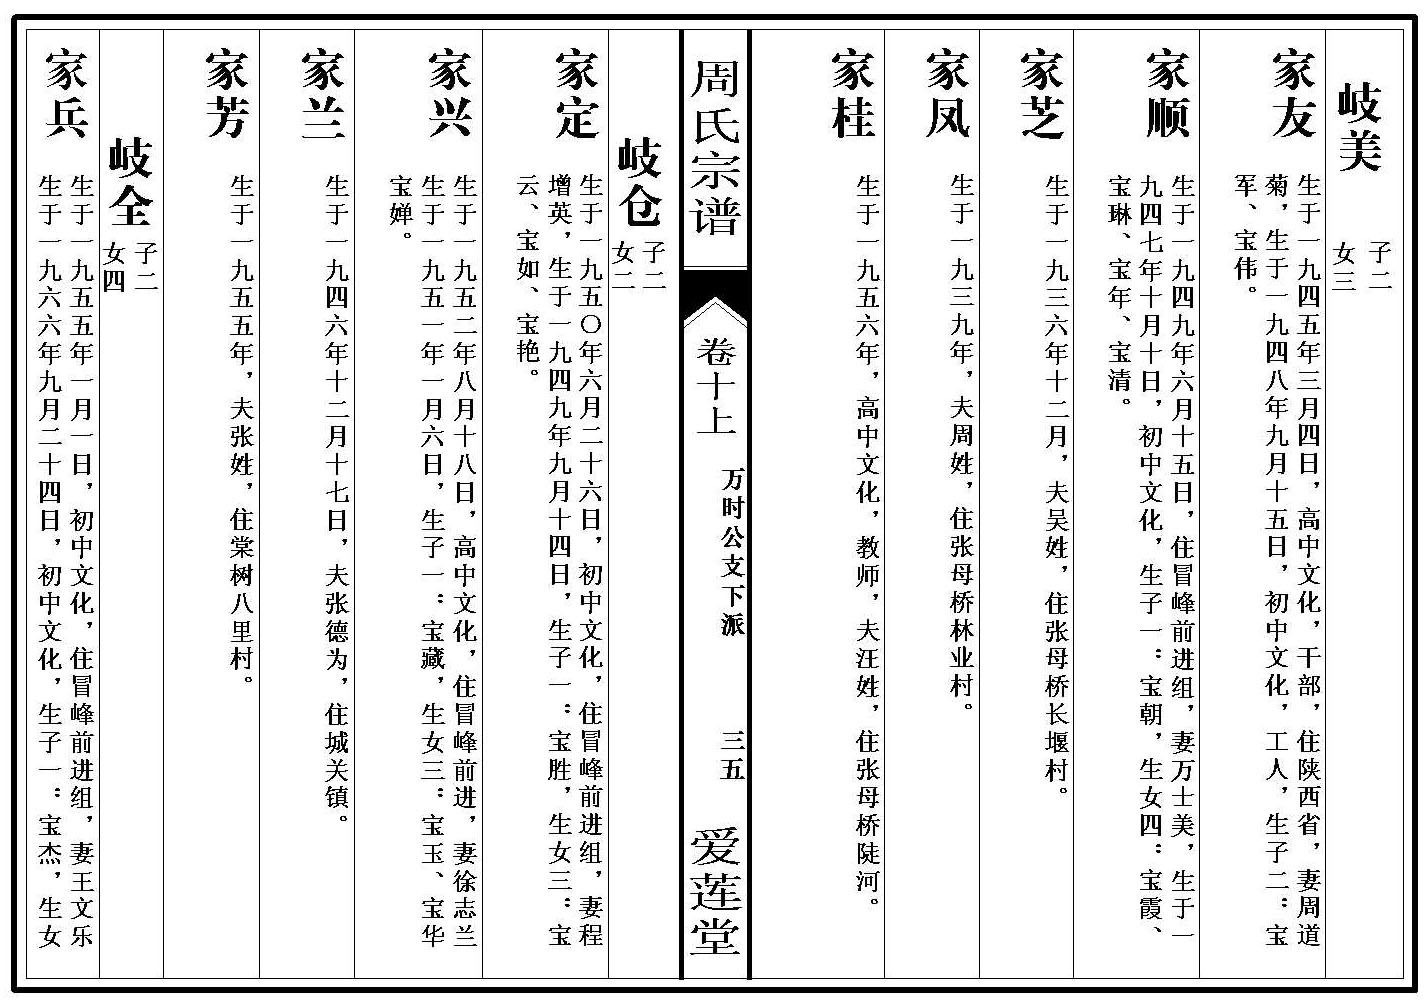 岐美
子二
女三
家友
生于一九四五年三月四日，高中文化，干部，住陕西省，妻周道
菊，生于一九四八年九月十五日，初中文化，工人，生子二：宝
军、宝伟。
家顺
生于一九四九年六月十五日，住冒峰前进组，妻万士美，生于一
九四七年十月十日，初中文化，生子一：宝朝，生女四：宝霞、
宝琳、宝年、宝清。
家芝
生于一九三六年十二月，夫吴姓，住张母桥长堰村。
家凤
生于一九三九年，夫周姓，住张母桥林业村。
家桂
生于一九五六年，高中文化，教师，夫汪姓，住张母桥陡河。
周氏宗谱
卷十上
万时公支下派
三五
爱莲堂
岐仓
子二
女二
家定
生于一九五〇年六月二十六日，初中文化，住冒峰前进组，妻程
增英，生于一九四九年九月十四日，生子一：宝胜，生女三：宝
云、宝如、宝艳。
家兴
生于一九五二年八月十八日，高中文化，住冒峰前进，妻徐志兰
生于一九五一年一月六日，生子一：宝藏，生女三：宝玉、宝华
宝婵。
家兰
生于一九四六年十二月十七日，夫张德为，住城关镇。
家芳
生于一九五五年，夫张姓，住棠树八里村。
岐全
子二
女四
家兵
生于一九五五年一月一日，初中文化，住冒峰前进组，妻王文乐
生于一九六六年九月二十四日，初中文化，生子一：宝杰，生女